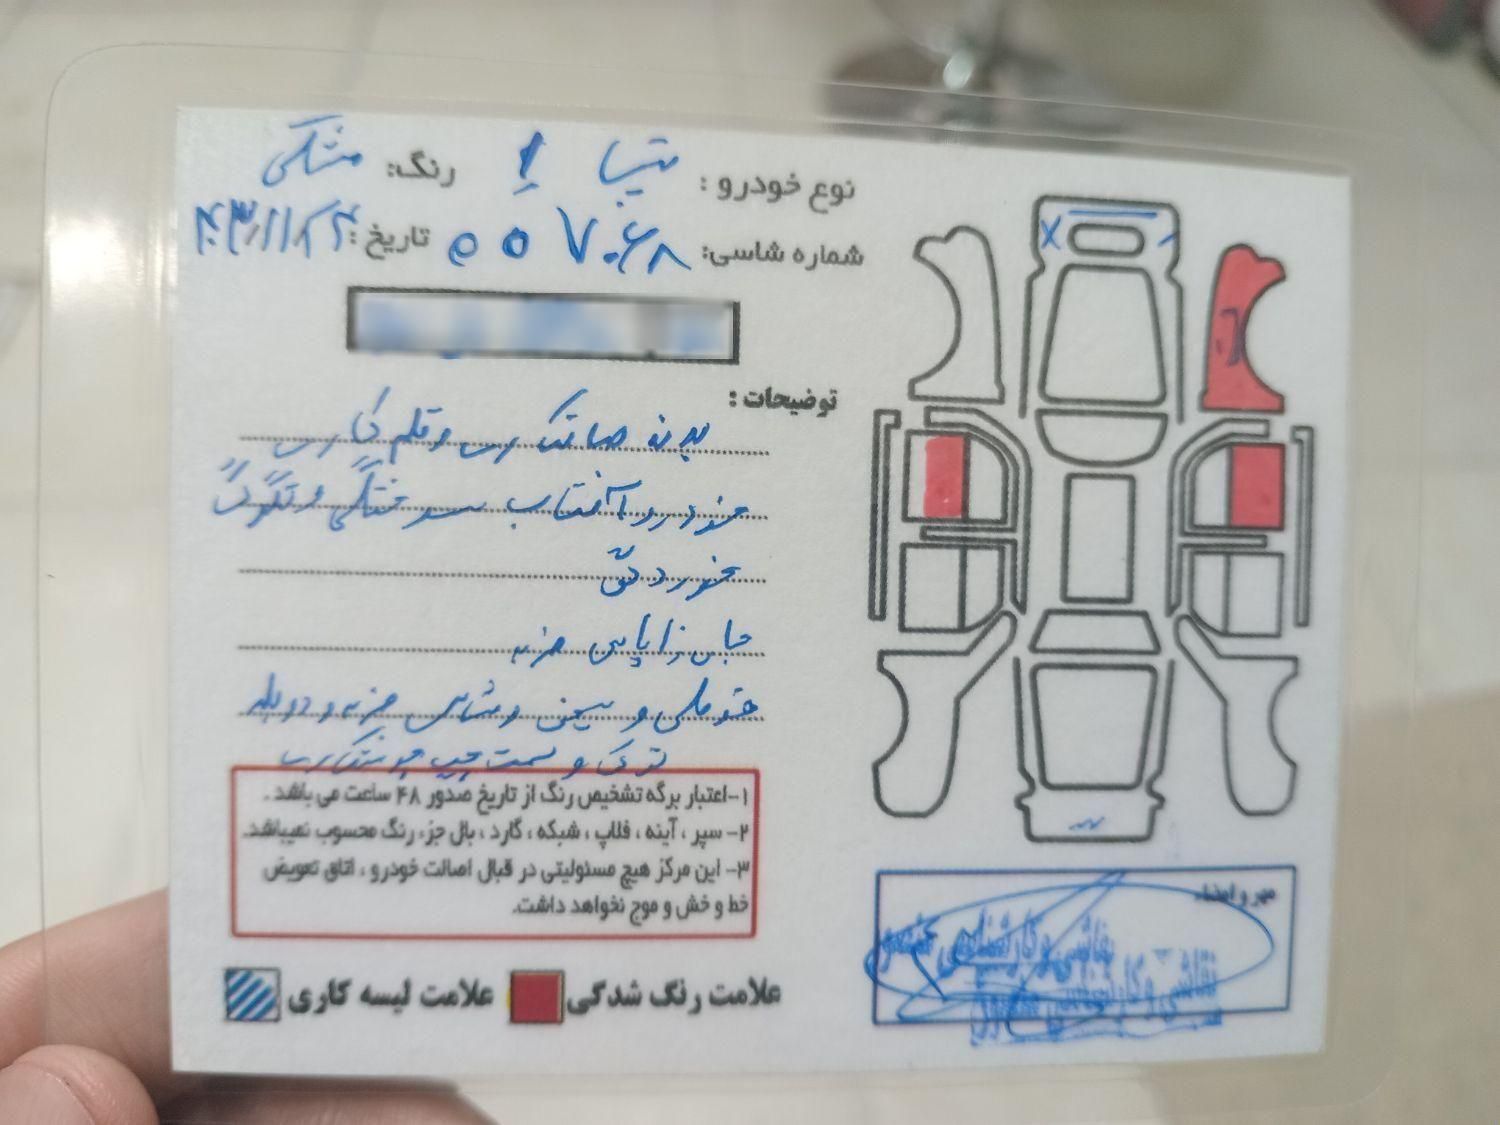 نوع خودرو : تیبا رنگ: مشکی
شماره شاسی: تاریخ:
توضیحات :
بدنه صافکاری و قلم گیری
خودرو آفتاب سوختگی و تگرگ
خوردگی
جای زاپاس ضربه
و سینی و شاسی ضربه و
و سمت چپ
۱-اعتبار برگه تشخیص رنگ از تاریخ صدور ۴۸ ساعت می باشد .
۲- سپر ، آینه ، فلاپ ، شبکه ، گارد ، بال جزء رنگ محسوب نمیباشد.
۳- این مرکز هیچ مسئولیتی در قبال اصالت خودرو ، اتاق تعویض
خط و خش و موج نخواهد داشت.
علامت رنگ شدگی علامت لیسه کاری
مهر و امضاء